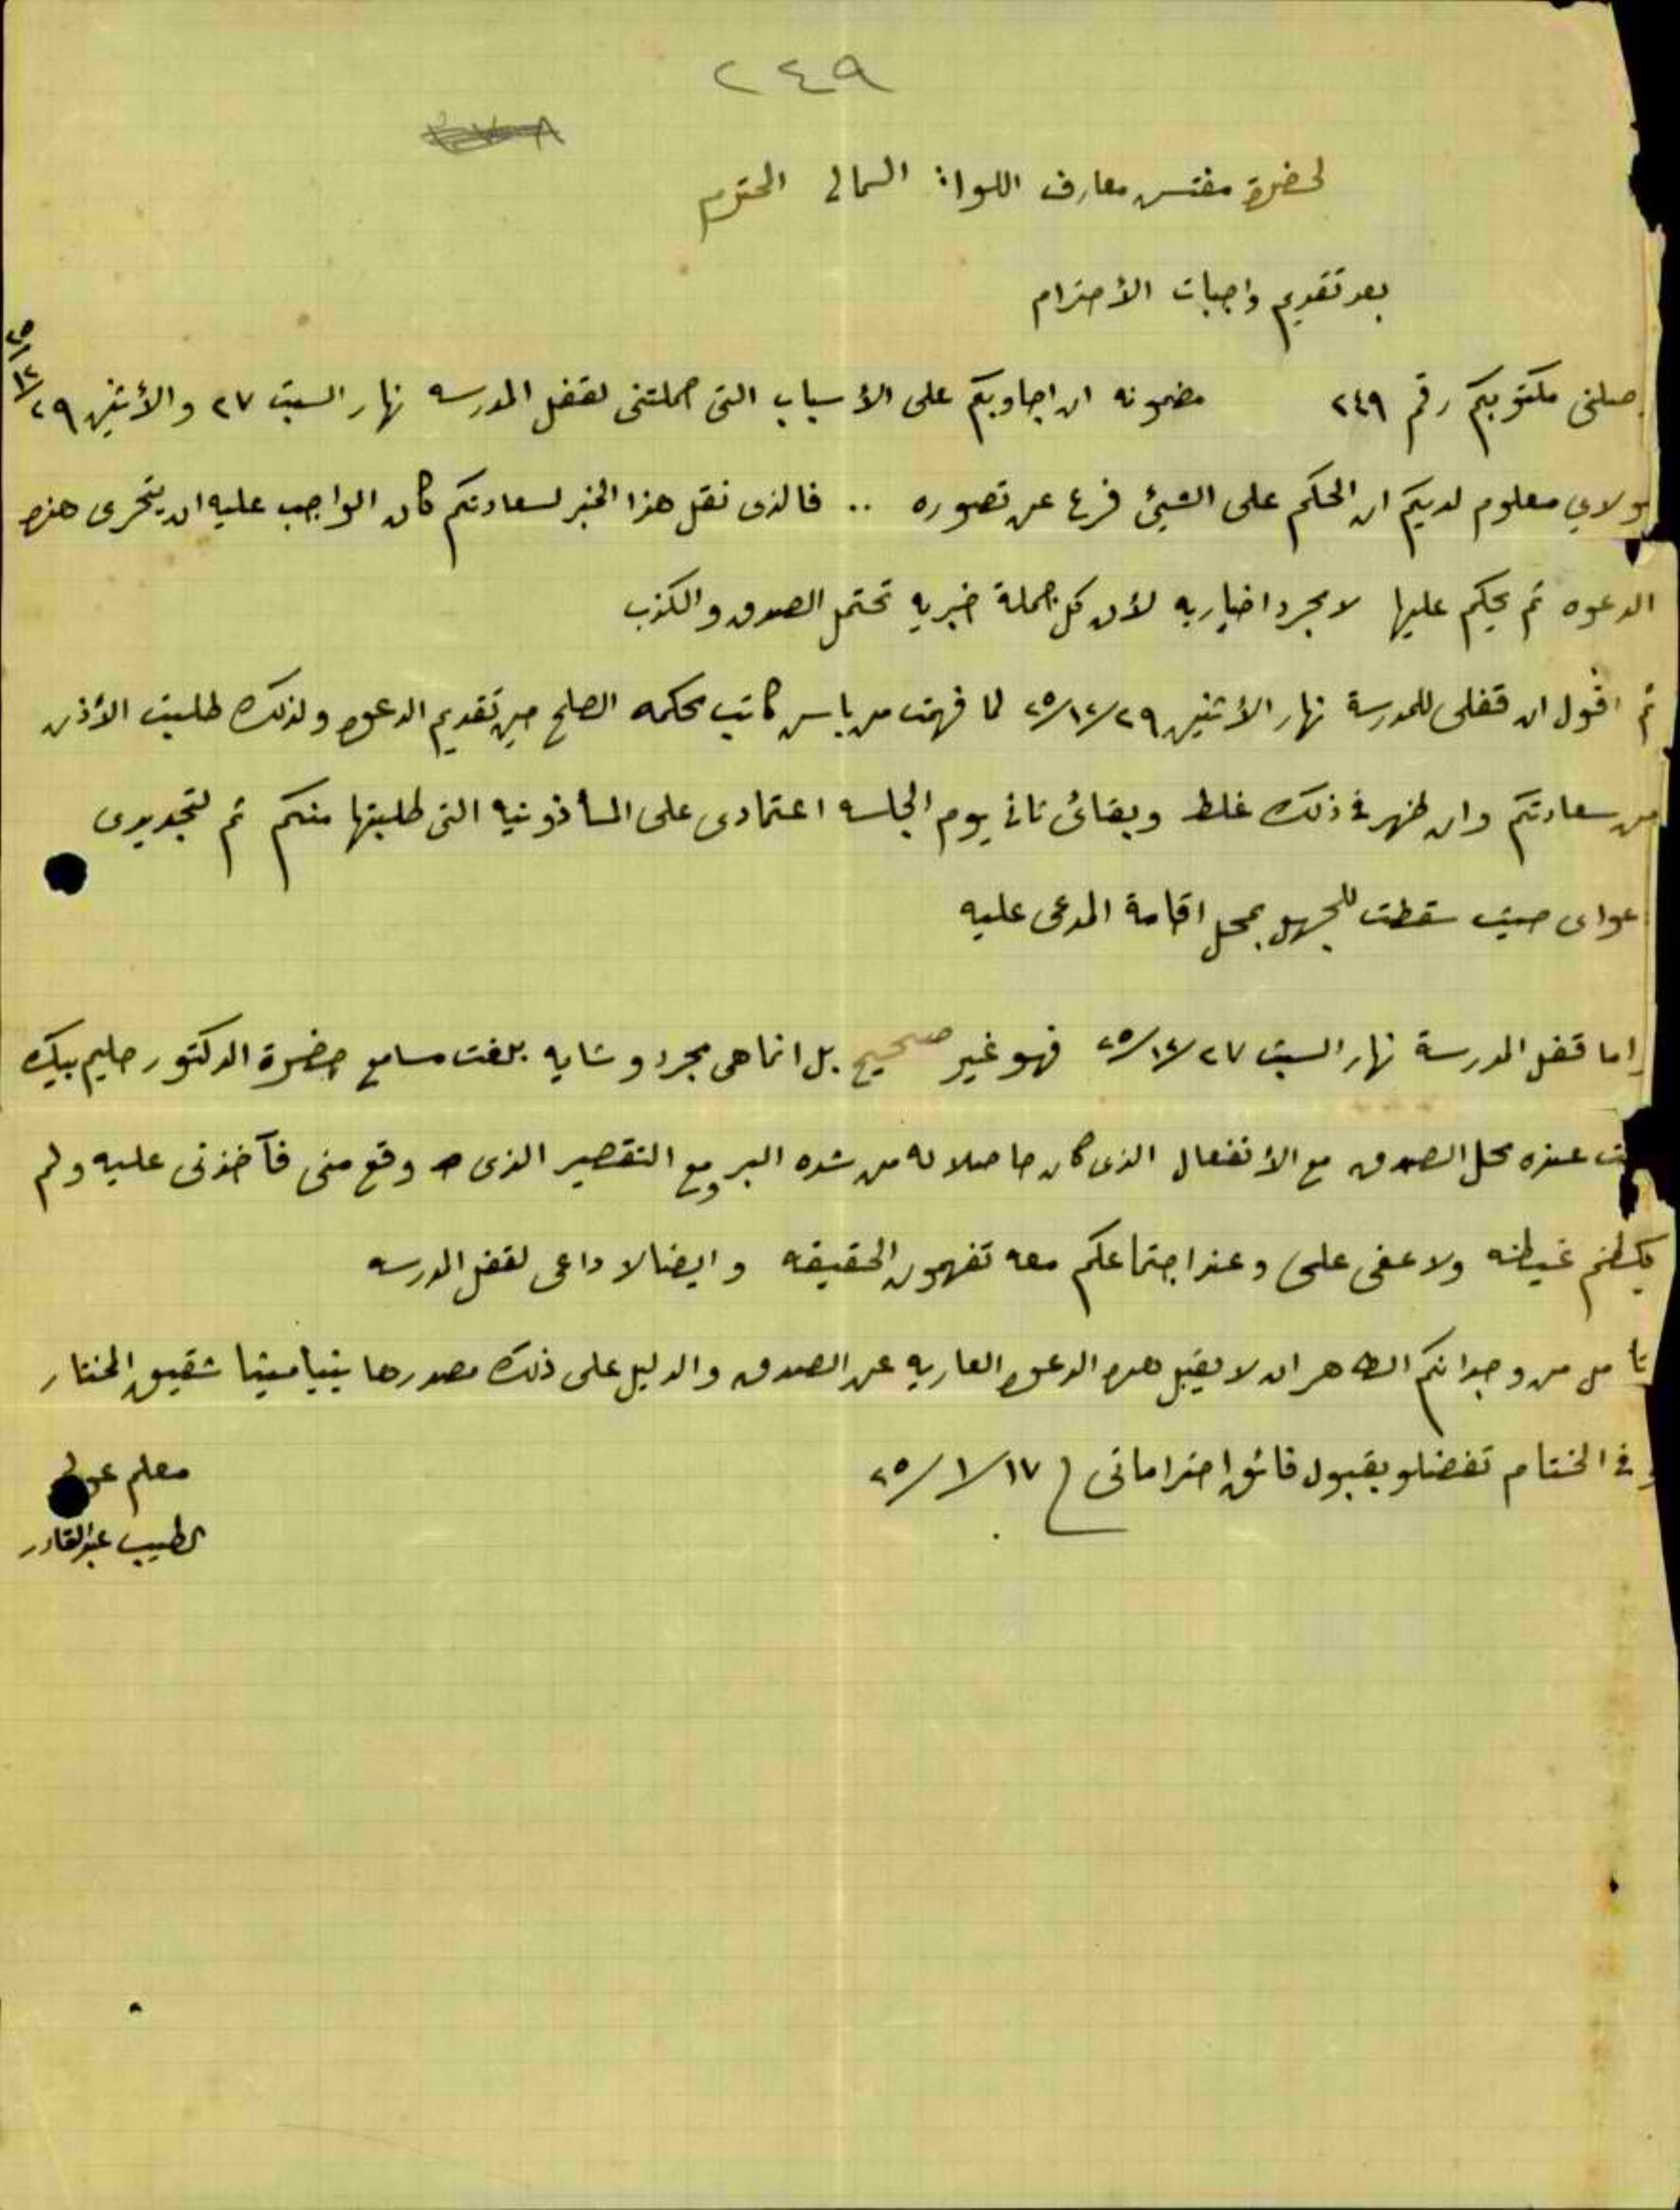 ٢٤٩
لحضرة مفتش معارف اللواء الشمالي المحترم
بعد تقديم واجبات الأحترام
وصلنى مكتوبكم رقم ٢٤٩ مضمونه ان اجاوبكم على الأسباب التى حملتنى لقفل المدرسه نهار السبت ٢٧ والأثنين ٢٩/١٢/٢٥
مولاي معلوم لديكم ان الحكم على الشيئ فرع عن تصوره .. فالذى نقل هذا الخبر لسعادتكم كان الواجب عليه ان يتحرى هذه
الدعوه ثم يحكم عليها لا بمجرد اخباريه لأن كل جملة خبريه تحتمل الصدق والكذب
ثم اقول ان قفلى للمدرسة نهار الأثنين ٢٥/١٢/٢٩ لما فهمت من باس كاتب محكمه الصلح حين تقديم الدعوه ولذلك طلبت الأذن
من سعادتكم وان ظهر فى ذلك غلط وبقائى ثانى يوم الجلسه اعتمادى على المأذونيه التى طلبتها منكم ثم لتجديدى
دعواى حيث سقطت للجهل بمحل اقامة المدعى عليه
واما قفل المدرسة نهار السبت ٢٥/١٢/٢٧ فهو غير صحيح بل انما هى مجرد وشايه بلغت مسامع حضرة الدكتور حليم بيك
عنده محل الصدق مع الأنفعال الذى كان حاصلا له من شده البرد مع التقصير الذى وقع منى فآخذنى عليه ولم
يكظم غيظه ولا عفى على وعند اجتماعكم معه تفهمون الحقيقه وايضا لا داعى لقفل المدرسه
نأمل من وجدانكم الطاهر ان لا يقبل هذه الدعوه العاريه عن الصدق والدليل على ذلك مصدرها شقيق المختار
وفى الختام تفضلو بقبول فائق احتراماتى ٢٥/١/١٧
معلم
الطيب عبدالقادر